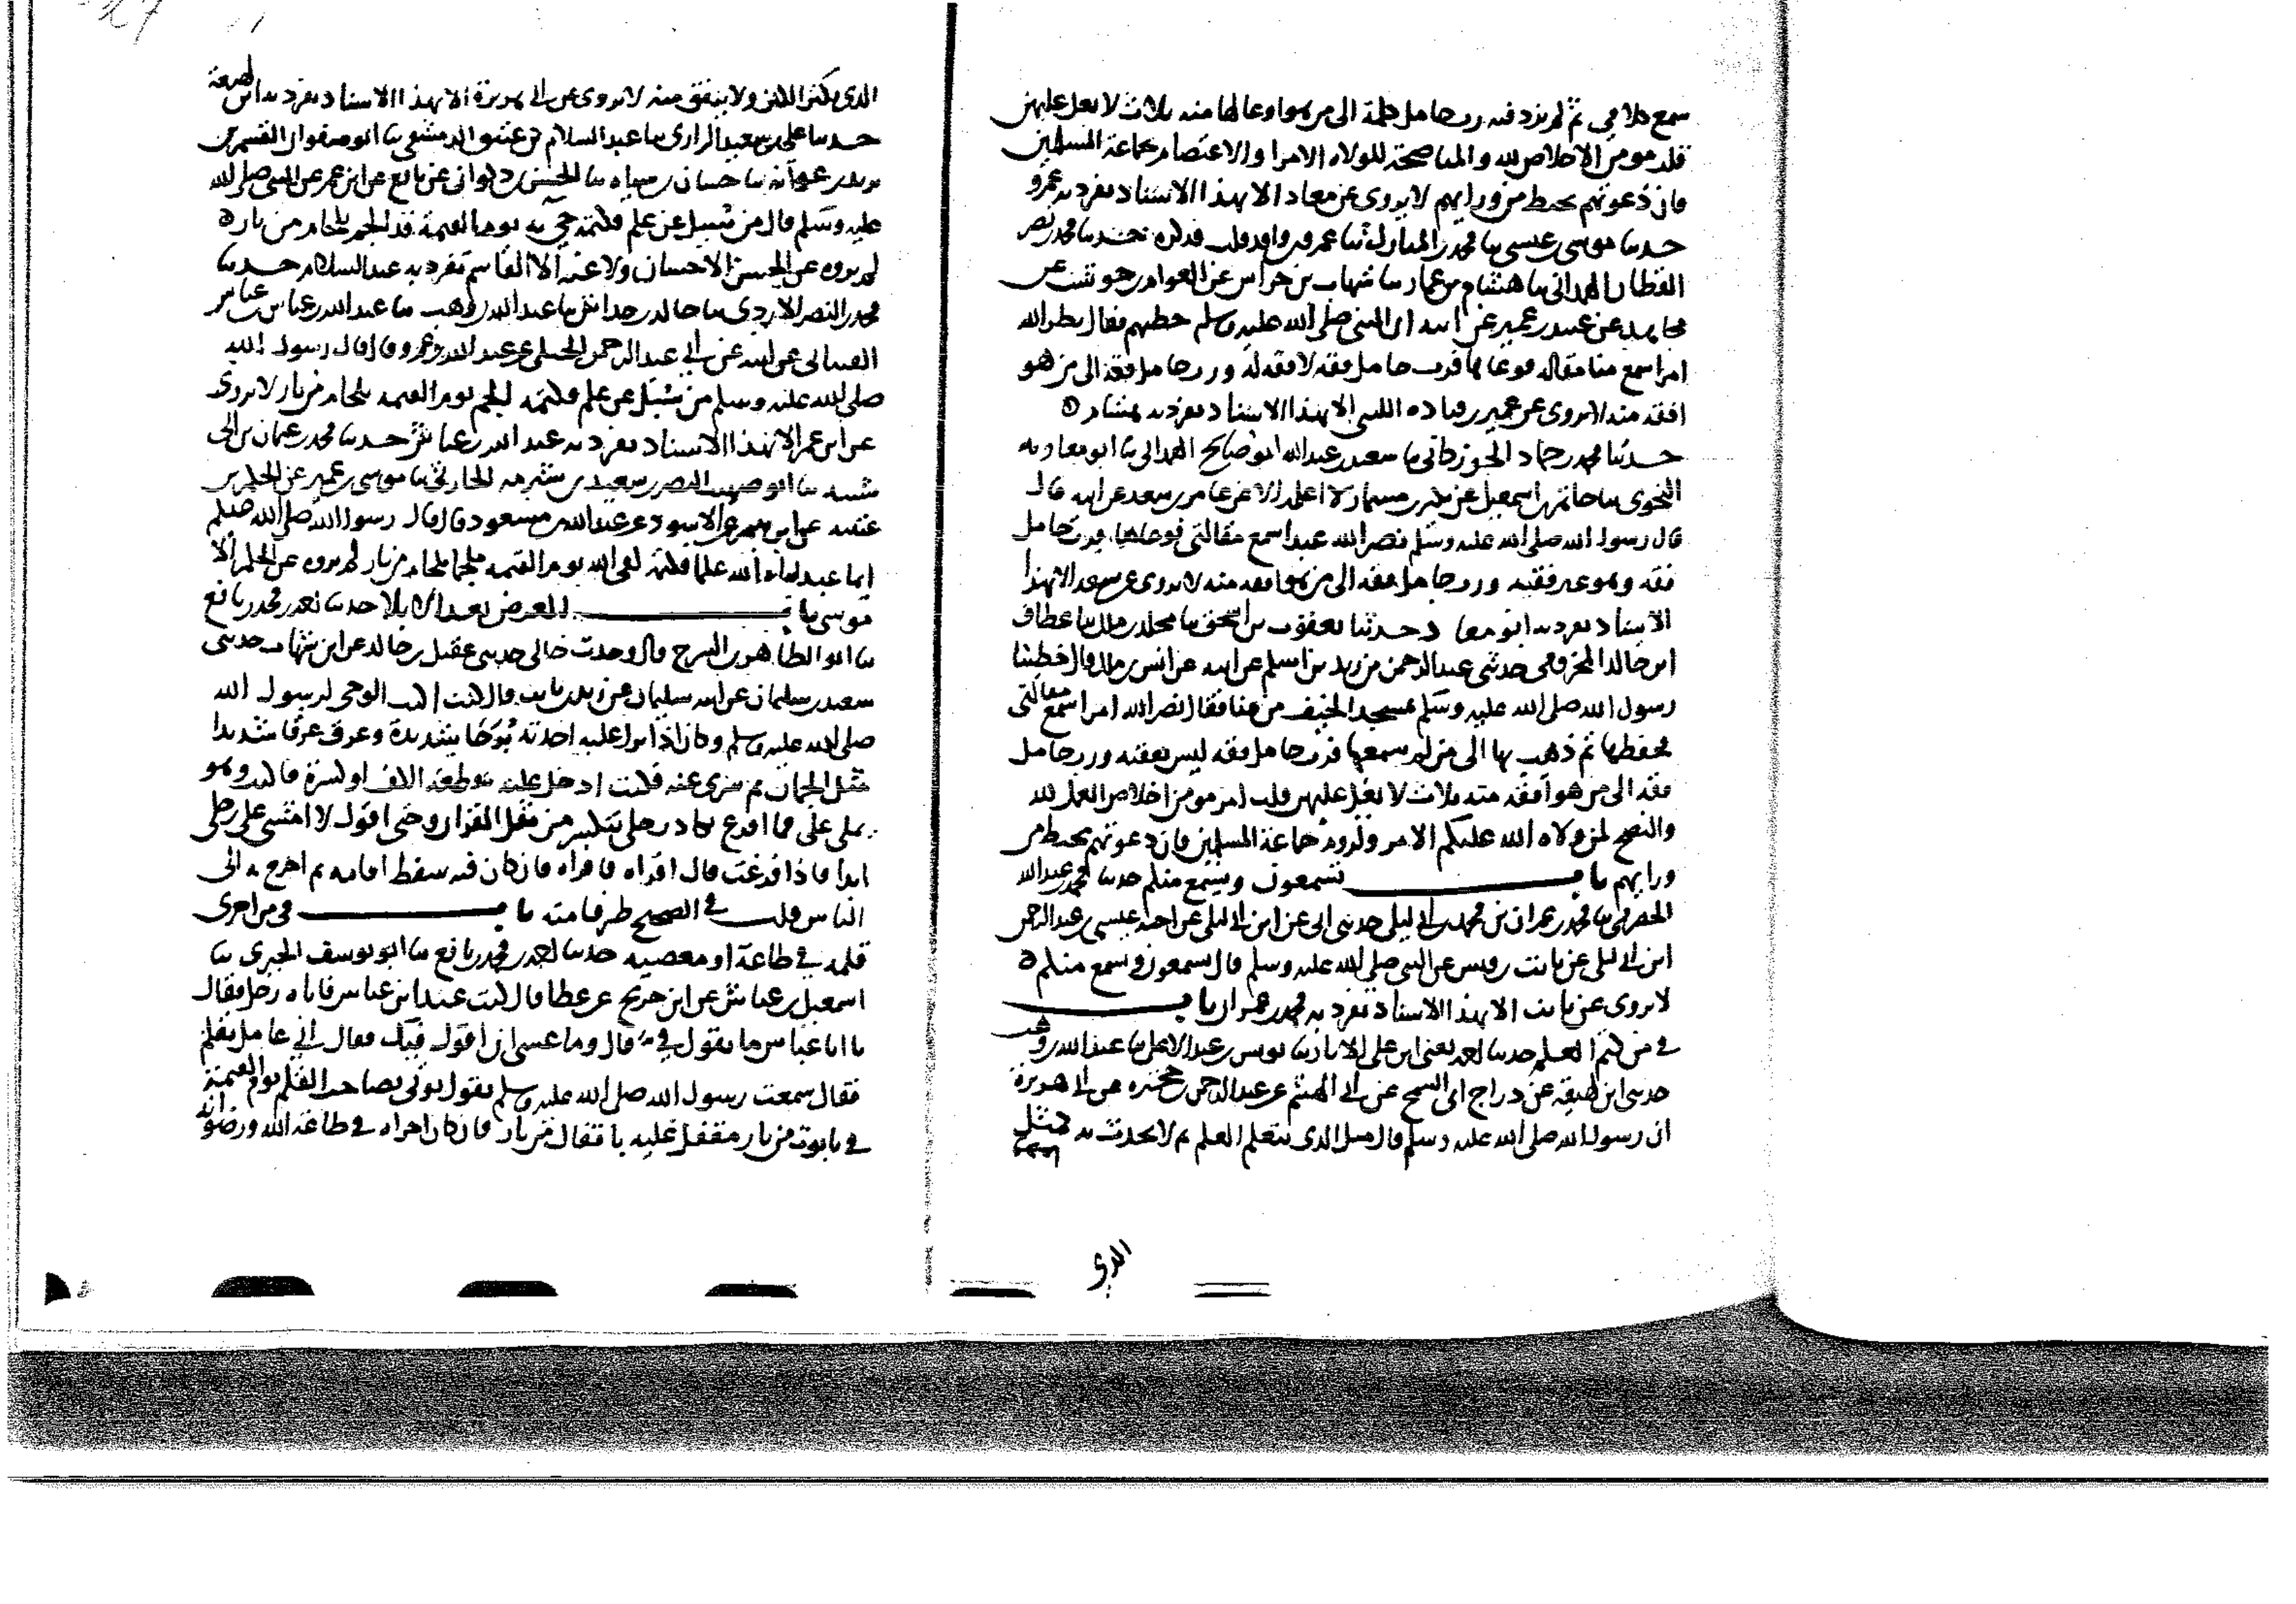 سمع كلامي ثم لم يزد فيه رب حامل كلمة الى من هو اوعا لها منه ثلاث لا يغل عليهن
قلب مومن الاخلاص لله والمناصحة للولاه الامرا والاعتصام بجماعة المسلمين
فان دعوتهم تحيط من ورايهم لا يروى عن معاد الا بهذا الاسناد تفرد به عمرو
حدثنا موسى بن عيسى ثنا محمد بن المبارك ثنا عمرو بن واقد فذكره حدثنا محمد بن نصر
القطان الهمداني ثنا هشام بن عمار ثنا شهاب بن خراش عن العوام بن حوشب عن
مجاهد عن عبيد بن عمير عن ابيه ان النبي صلى الله عليه وسلم خطبهم فقال نضر الله
امرا سمع منا مقاله فوعاها فرب حامل فقه لا فقه له ورب حامل فقه الى من هو
افقه منه لا يروى عن عمير بن قتاده الليثي الا بهذا الاسناد تفرد به هشام
حدثنا محمد بن حماد الجوزجاني ثنا سعيد بن عبد الله ابو صالح ثنا ابو معاويه
النحوى ثنا حاتم بن اسمعيل عن بكير بن مسمار لا اعلمه الا عن عامر بن سعد عن ابيه قال
قال رسول الله صلى الله عليه وسلم نضر الله عبدا سمع مقالتي فوعاها فرب حامل
فقه وهو غير فقيه ورب حامل فقه الى من هو افقه منه لا يروى عن سعد الا بهذا
الاسناد تفرد به ابو معا حدثنا يعقوب بن اسحق ثنا مخلد بن ملك ثنا عطاف
ابن خالد المخزومي حدثني عبد الرحمن بن زيد بن اسلم عن ابيه عن انس بن مالك قال خطبنا
رسول الله صلى الله عليه وسلم بمسجد الخيف من منا فقال نضر الله امرا سمع مقالتي
فحفظها ثم ذهب بها الى من لم يسمعها فرب حامل فقه ليس بفقيه ورب حامل
فقه الى من هو افقه منه ثلاث لا يغل عليهن قلب امر مومن اخلاص العمل لله
والنصح لمن ولاه الله عليكم الامر ولزوم جماعة المسلمين فان دعوتهم تحيط من
ورايهم باب تسمعون ويسمع منكم حدثنا محمد بن عبد الله
الحضرمي ثنا محمد بن عمران بن محمد بن ابي ليلى حدثني ابي عن ابن ابي ليلى عن اخيه عيسى بن عبد الرحمن
ابن ابي ليلى عن ثابت بن قيس عن النبي صلى الله عليه وسلم قال تسمعون ويسمع منكم
لا يروى عن ثابت الا بهذا الاسناد تفرد به محمد بن عمران باب
في من كتم العلم حدثنا احمد يعني ابن علي الابار ثنا يونس بن عبد الاعلى ثنا عبد الله بن وهب
حدثني ابن لهيعه عن دراج ابي السمح عن ابي الهيثم عن عبد الرحمن بن حجيره عن ابي هريرة
ان رسول الله صلى الله عليه وسلم قال مثل الذى يتعلم العلم ثم لا يحدث به كمثل
الذي
الذي يكنز الكنز ولا ينفق منه لا يروى عن ابي هريرة الا بهذا الاسناد تفرد به ابن لهيعة
حدثنا علي بن سعيد الرازى ثنا عبد السلام بن عتيق الدمشقي ثنا ابو صفوان القسم بن
يزيد بن عوانه ثنا حسان بن سياه ثنا الحسن بن ذكوان عن نافع عن ابن عمر عن النبي صلى الله
عليه وسلم قال من سئل عن علم فكتمه جي به يوم القيمة قد الجم بلجام من نار
لم يروه عن الحسن الا حسان ولا عنه الا القاسم تفرد به عبد السلام حدثنا
محمد بن النضر الازدى ثنا خالد بن خداش ثنا عبد الله بن وهب ثنا عبد الله بن عياش بن عباس
القتباني عن ابيه عن ابي عبد الرحمن الحبلي عن عبد الله بن عمرو قال قال رسول الله
صلى الله عليه وسلم من سئل عن علم فكتمه الجم يوم القيمه بلجام من نار لا يروى
عن ابن عمر الا بهذا الاسناد تفرد به عبد الله بن عياش حدثنا محمد بن عثمان بن ابي
شيبه ثنا ابو صهيب النضر بن سعيد بن شبرمه الحارثي ثنا موسى بن عمير عن الحكم بن
عتيبه عن ابراهيم عن الاسود عن عبد الله بن مسعود قال قال رسول الله صلى الله عليه وسلم
ايما عبد اتاه الله علما فكتمه لقي الله يوم القيمه ملجما بلجام من نار لم يروه عن الحكم الا
موسى باب العرض بعد الاملا حدثنا احمد بن محمد بن نافع
ثنا ابو الطاهر بن السرح قال وجدت خالي حدثني عقيل بن خالد عن ابن شهاب حدثني
سعيد بن سليمان عن ابيه سليمان عن زيد بن ثابت قال كنت اكتب الوحي لرسول الله
صلى الله عليه وسلم وكان اذا نزل عليه اخذته برحا شديدة وعرق عرقا شديدا
مثل الجمان ثم سري عنه فكنت ادخل عليه بقطعة الكتف او كسرة فاكتب وهو
يملى علي فما افرغ تكاد رجلي تنكسر من نقل القران وحتى اقول لا امشي على رجلي
ابدا فاذا فرغت قال اقراه فاقراه فان كان فيه سقط اقامه ثم اخرج به الى
الناس قلت في الصحيح طرفا منه باب في من اجرى
قلمه في طاعة او معصيه حدثنا احمد بن محمد بن نافع ثنا ابو يوسف الجيزى ثنا
اسمعيل بن عياش عن ابن جريج عن عطا قال كنت عند ابن عباس فاتاه رجل فقال
يا ابا عباس ما تقول في قال وما عسى ان اقول فيك فقال اني عامل بقلم
فقال سمعت رسول الله صلى الله عليه وسلم يقول يوتى بصاحب القلم يوم القيمة
في تابوت من نار مقفل عليه باقفال من نار فان كان اجراه في طاعة الله ورضوانه